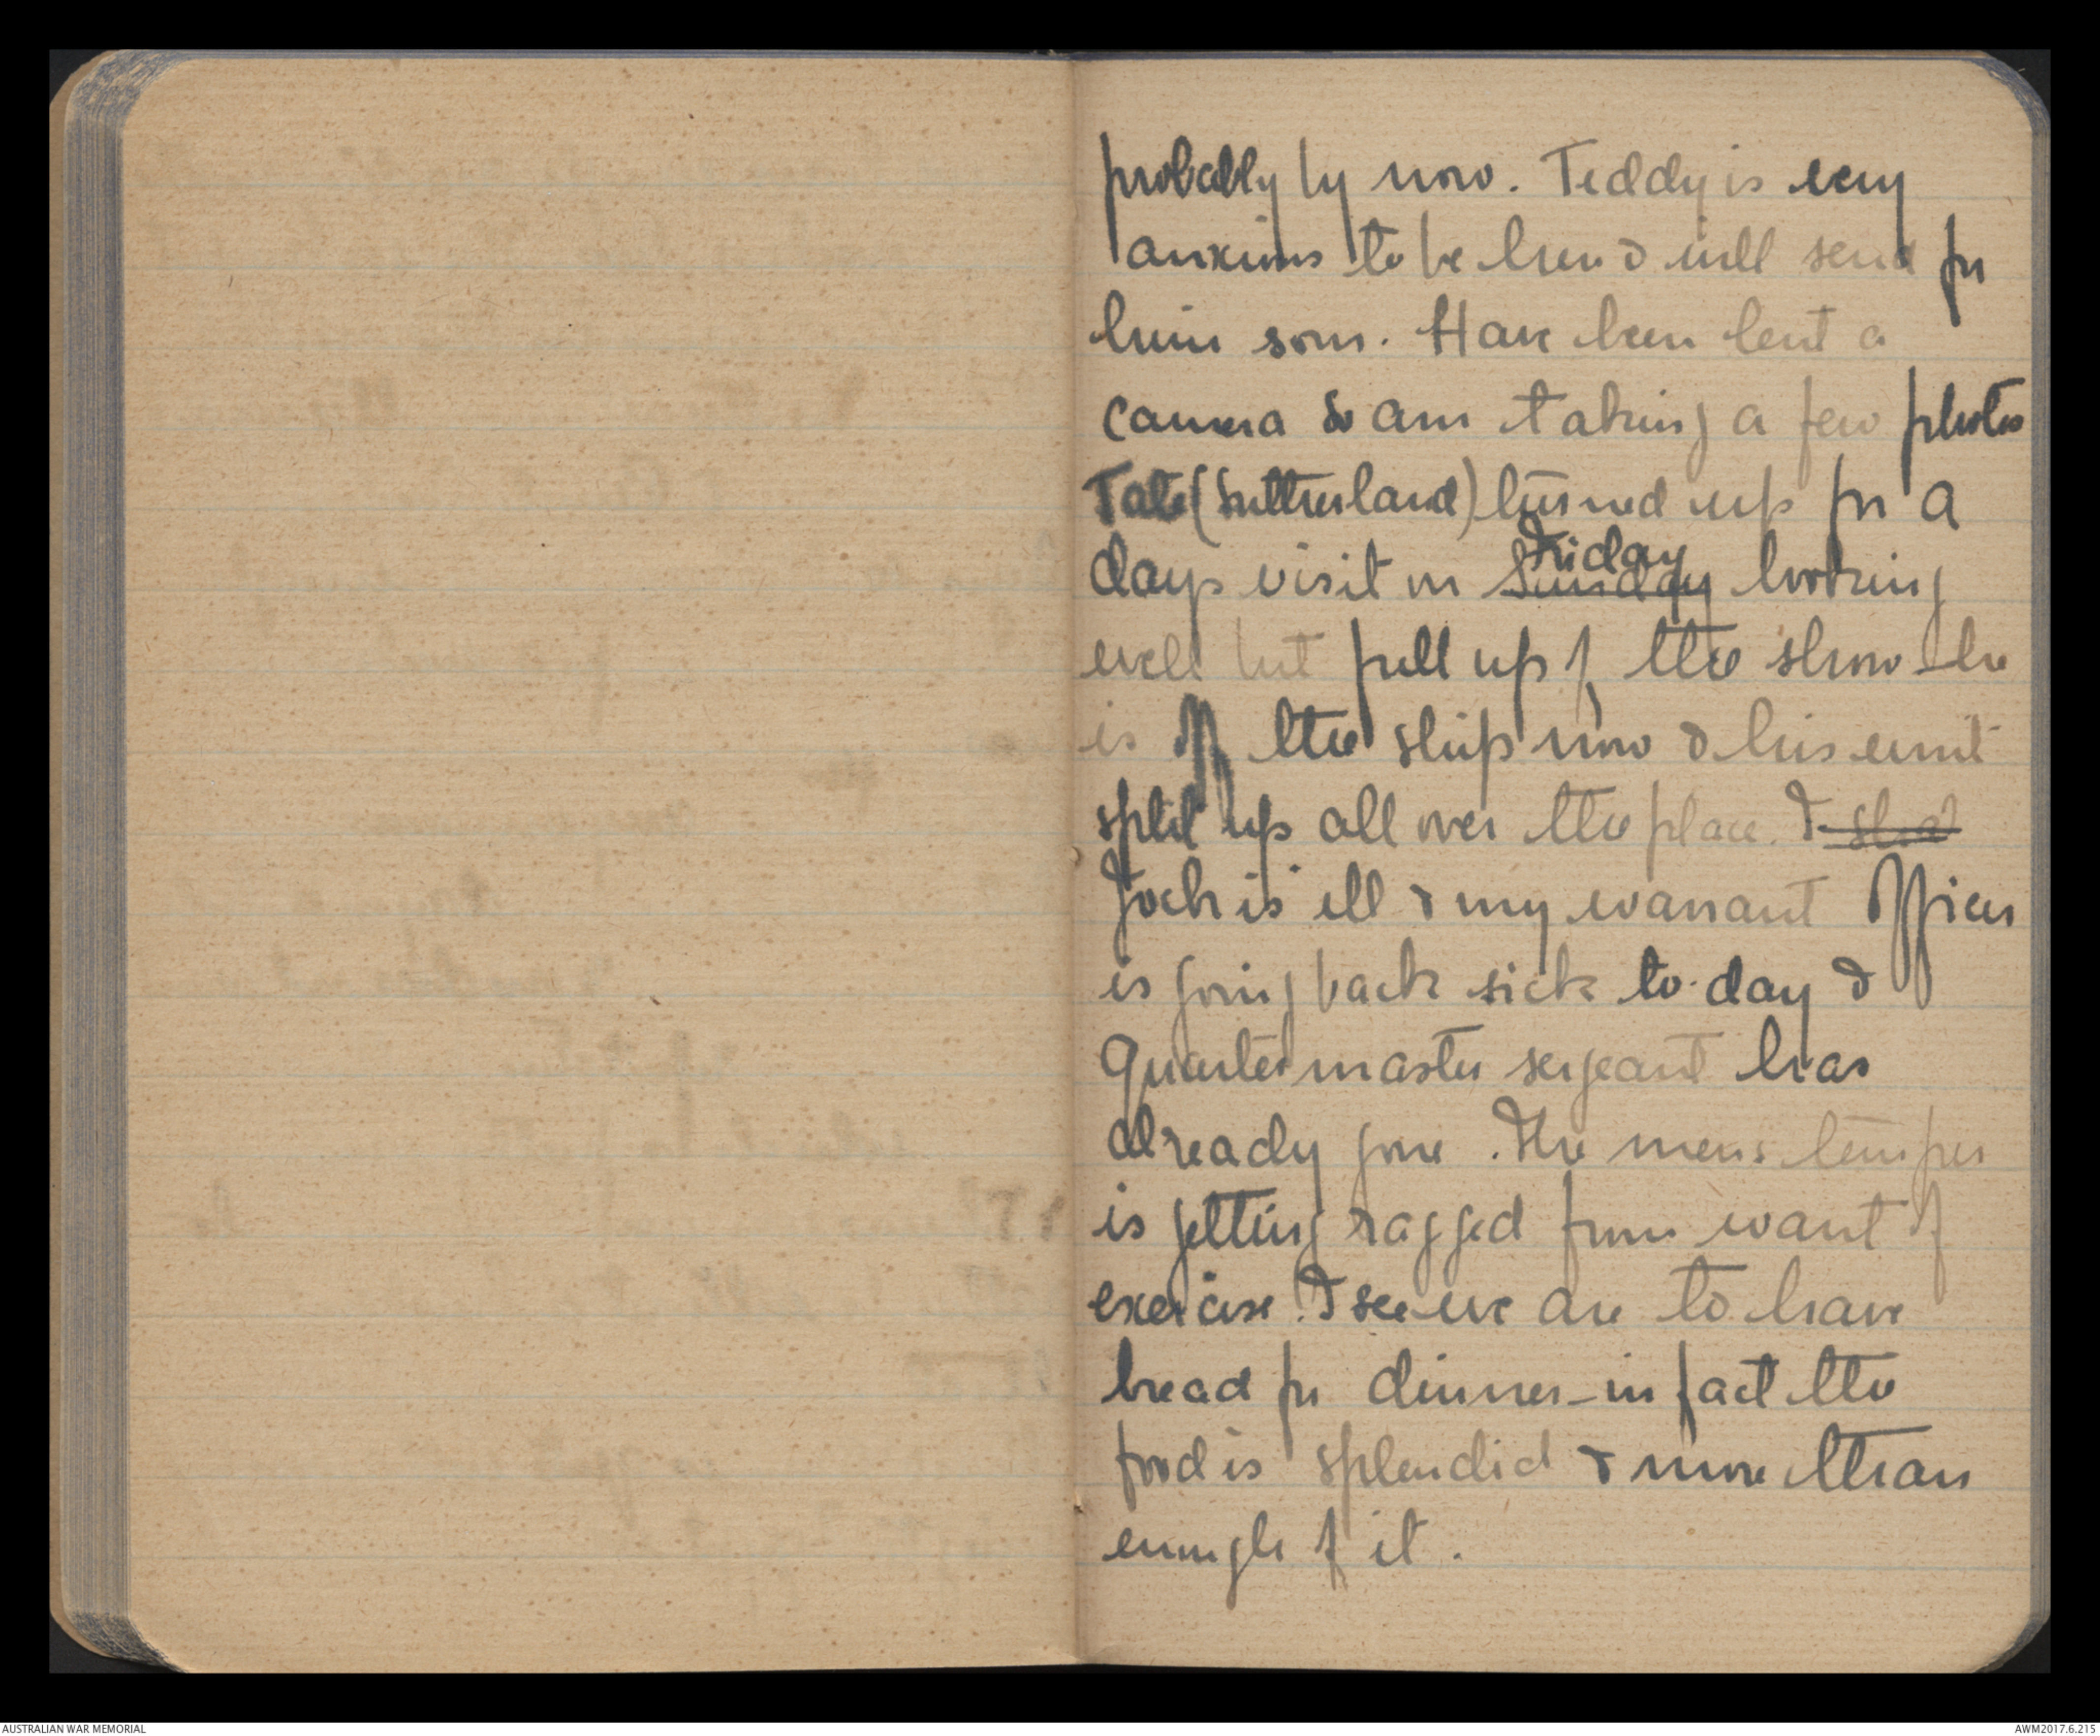 probably by now. Teddy is very
anxious to be here & will send for
him soon. Have been lent a
camera so am taking a few photos
Tate (Sutherland) turned up for a
days visit on Sunday Friday looking
well but full up of the show - he
is off the ship now & his unit
split up all over the place. &
Jock is ill & my warrant officer
is going back sick to-day &
Quartermaster sergeant has
already gone. The mens temper
is getting ragged from want of
exercise. I see we are to have
bread for dinner - in fact the
food is splendid & more than
enough of it.
AUSTRALIAN WAR MEMORIAL
AWM2017.6.215